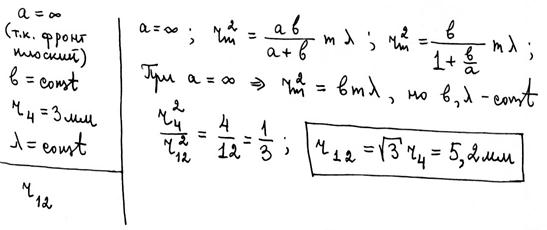 a = ∞
(т.к. фронт
плоский)
b = const
r₄ = 3 мм
λ = const
r₁₂
a = ∞ ; r²ₘ = ab/(a + b) mλ ; r²ₘ = b/(1 + b/a) mλ ;
При a = ∞ ⇒ r²ₘ = bmλ, но b, λ - const
r₄²/r₁₂² = 4/12 = 1/3 ; r₁₂ = √3 r₄ = 5,2 мм